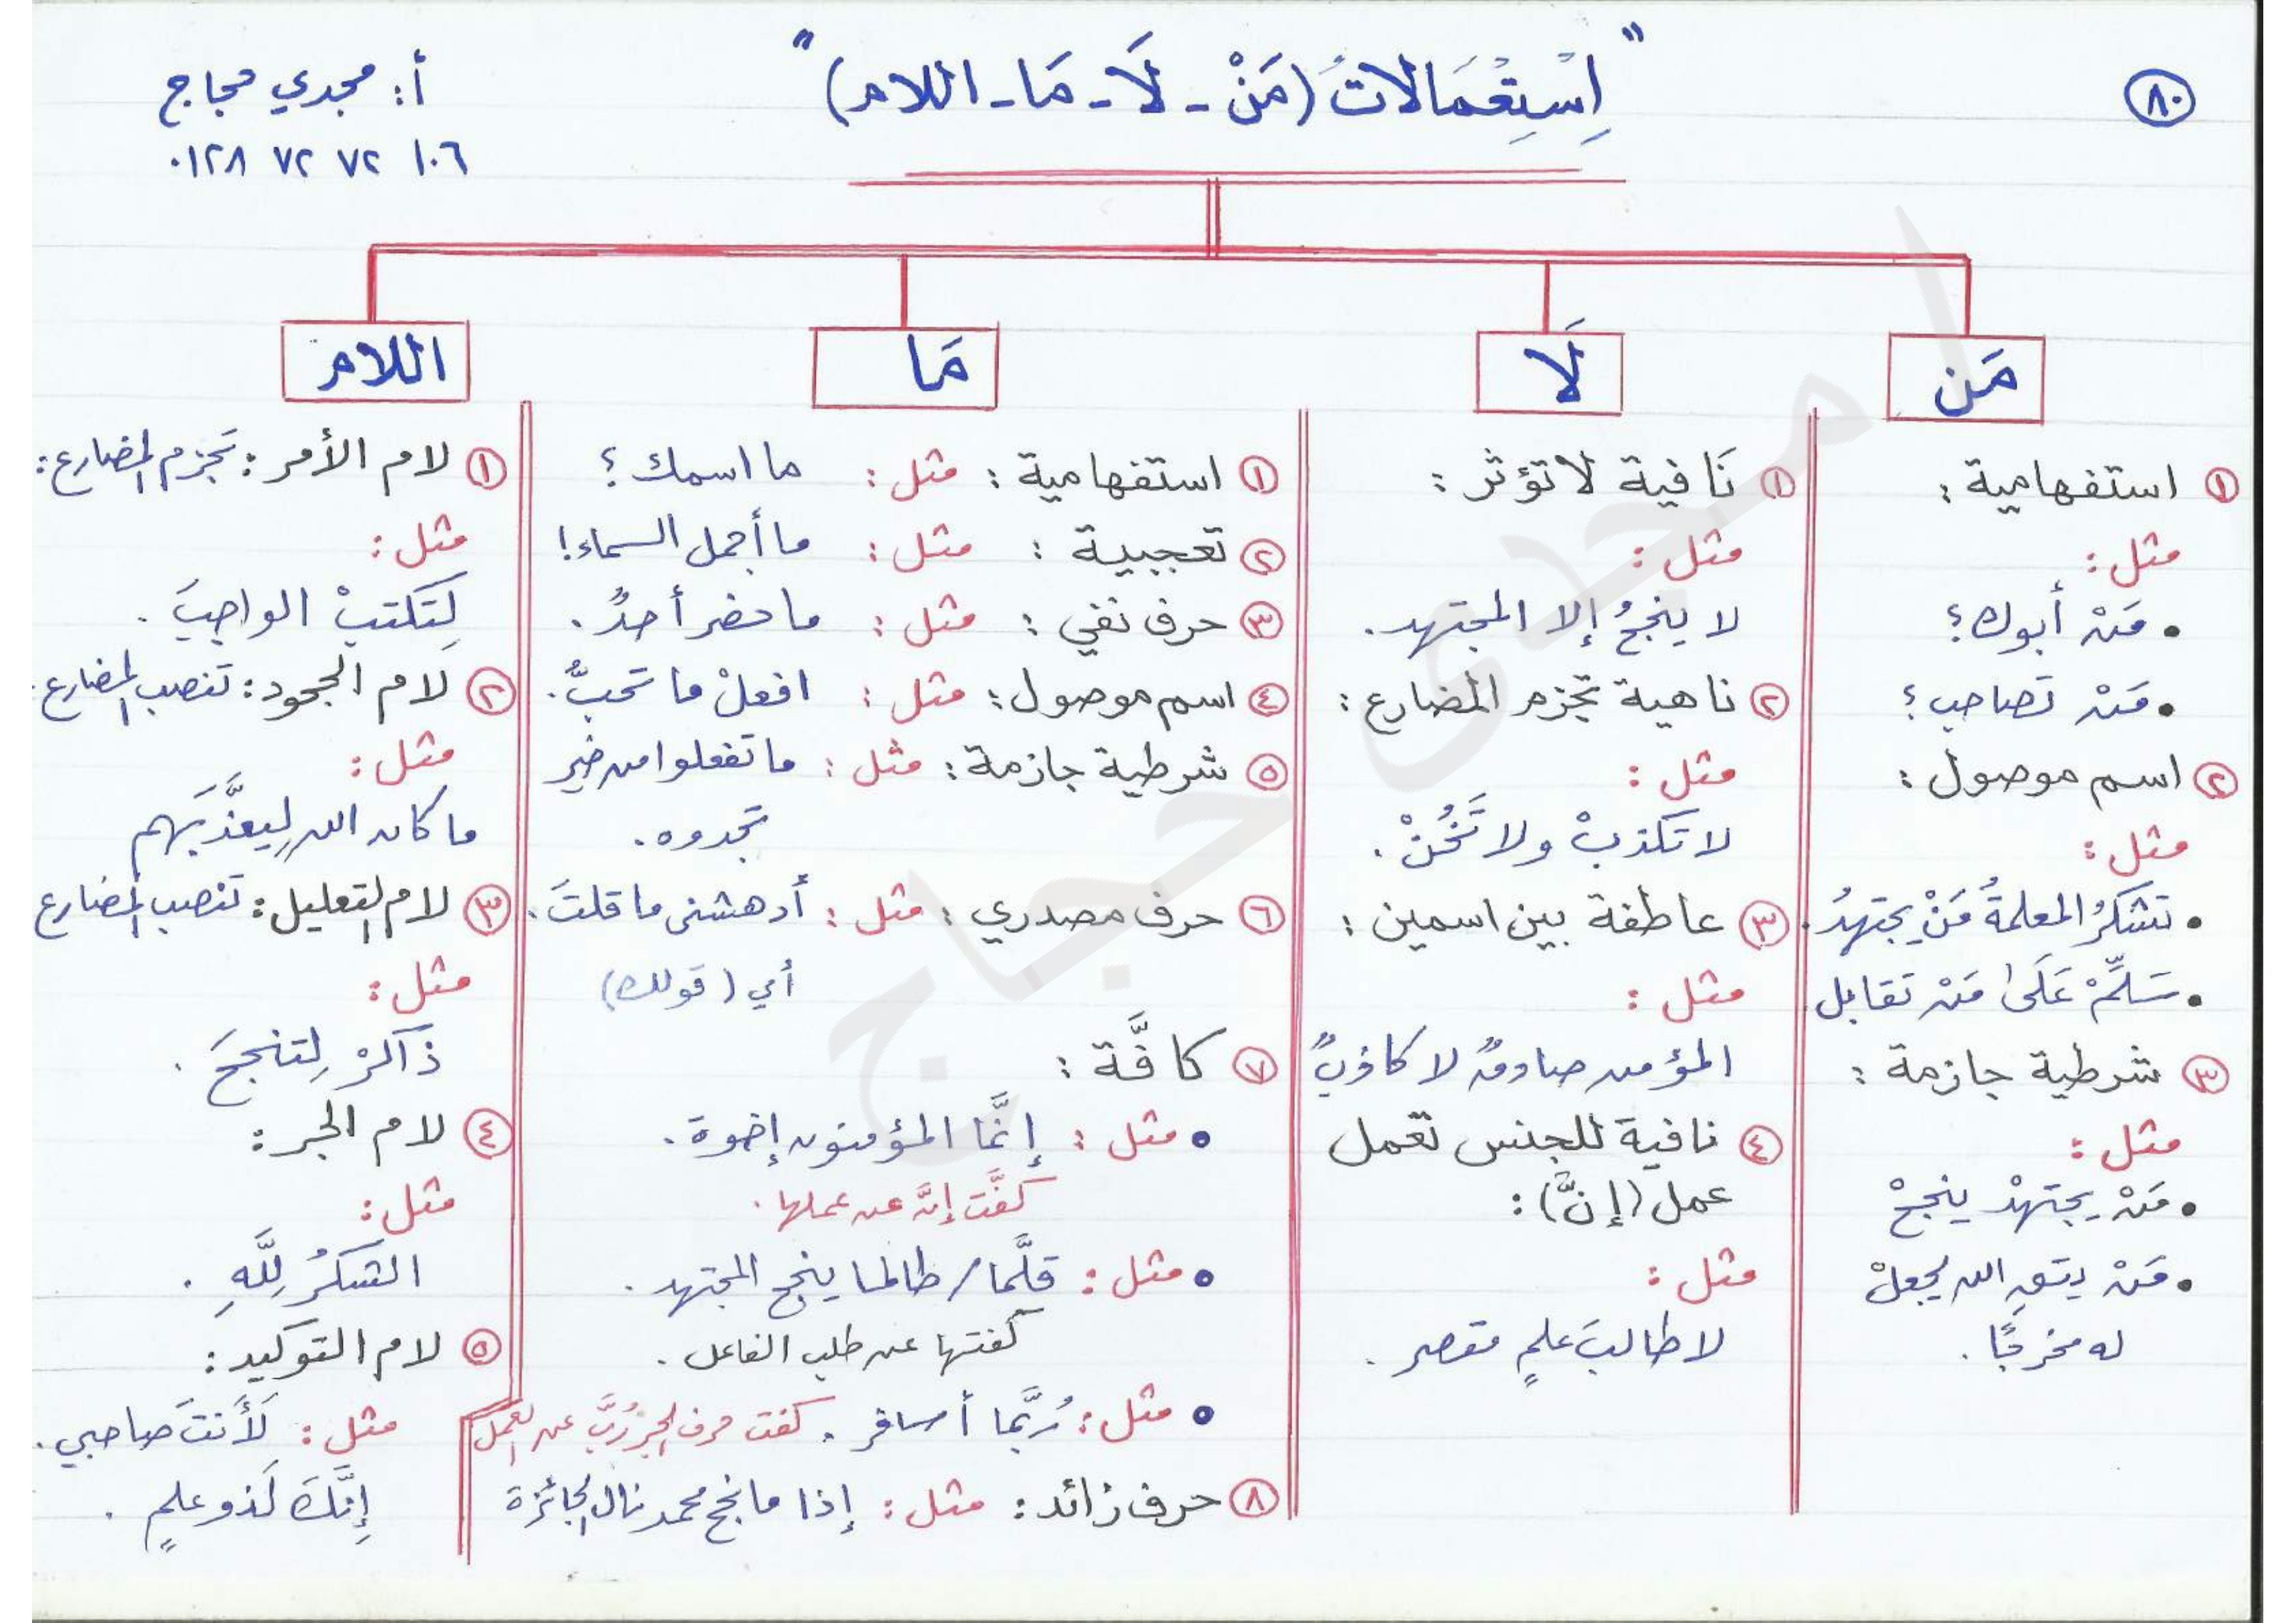 ٨٠
"اِسْتِعْمَالاتُ (مَنْ - لَا - مَا - اللام)"
أ: مجدي حجاج
٠١٢٨ ٧٢ ٧٢ ١٠٦
مَن
① استفهامية :
مثل :
• مَنْ أبوك؟
• مَنْ تصاحب؟
② اسم موصول :
مثل :
• تشكرُ المعلمةُ مَنْ يجتهدُ.
• سَلِّمْ عَلَى مَنْ تقابل.
③ شرطية جازمة :
مثل :
• مَنْ يجتهدْ ينجحْ
• مَنْ يتقِ الله يجعلْ
له مخرجًا.
لَا
① نَافية لا تؤثر :
مثل :
لا ينجحُ إلا المجتهد.
② ناهية تجزم المضارع :
مثل :
لا تكذبْ ولا تَخُنْ.
③ عاطفة بين اسمين :
مثل :
المؤمن صادقٌ لا كاذبٌ
④ نافية للجنس تعمل
عمل (إنَّ) :
مثل :
لا طالبَ علمٍ مقصر.
مَا
① استفهامية : مثل : ما اسمك؟
② تعجبية : مثل : ما أجمل السماء!
③ حرف نفي : مثل : ما حضر أحدٌ.
④ اسم موصول : مثل : افعلْ ما تحبُّ.
⑤ شرطية جازمة : مثل : ما تفعلوا من خير
تجدوه.
⑥ حرف مصدري : مثل : أدهشنى ما قلتَ.
أي (قولك)
⑦ كافَّة :
• مثل : إنَّما المؤمنون إخوة.
كفَّت إنَّ عن عملها.
• مثل : قلَّما / طالما ينجح المجتهد.
كفتها عن طلب الفاعل.
• مثل : رُبَّما أسافر. كفت حرف الجر رُبَّ عن العمل
⑧ حرف زائد : مثل : إذا ما نجح محمد نال الجائزة
اللام
① لام الأمر : تجزم المضارع :
مثل :
لِتكتبْ الواجبَ.
② لام الجحود : تنصب المضارع.
مثل :
ما كان الله لِيعذَّبَهم
③ لام التعليل : تنصب المضارع
مثل :
ذاكرْ لِتنجحَ.
④ لام الجر :
مثل :
الشكرُ لِلَّهِ.
⑤ لام التوكيد :
مثل : لَأنتَ صاحبي.
إنَّكَ لَذو علمٍ.
مجدى حجاج